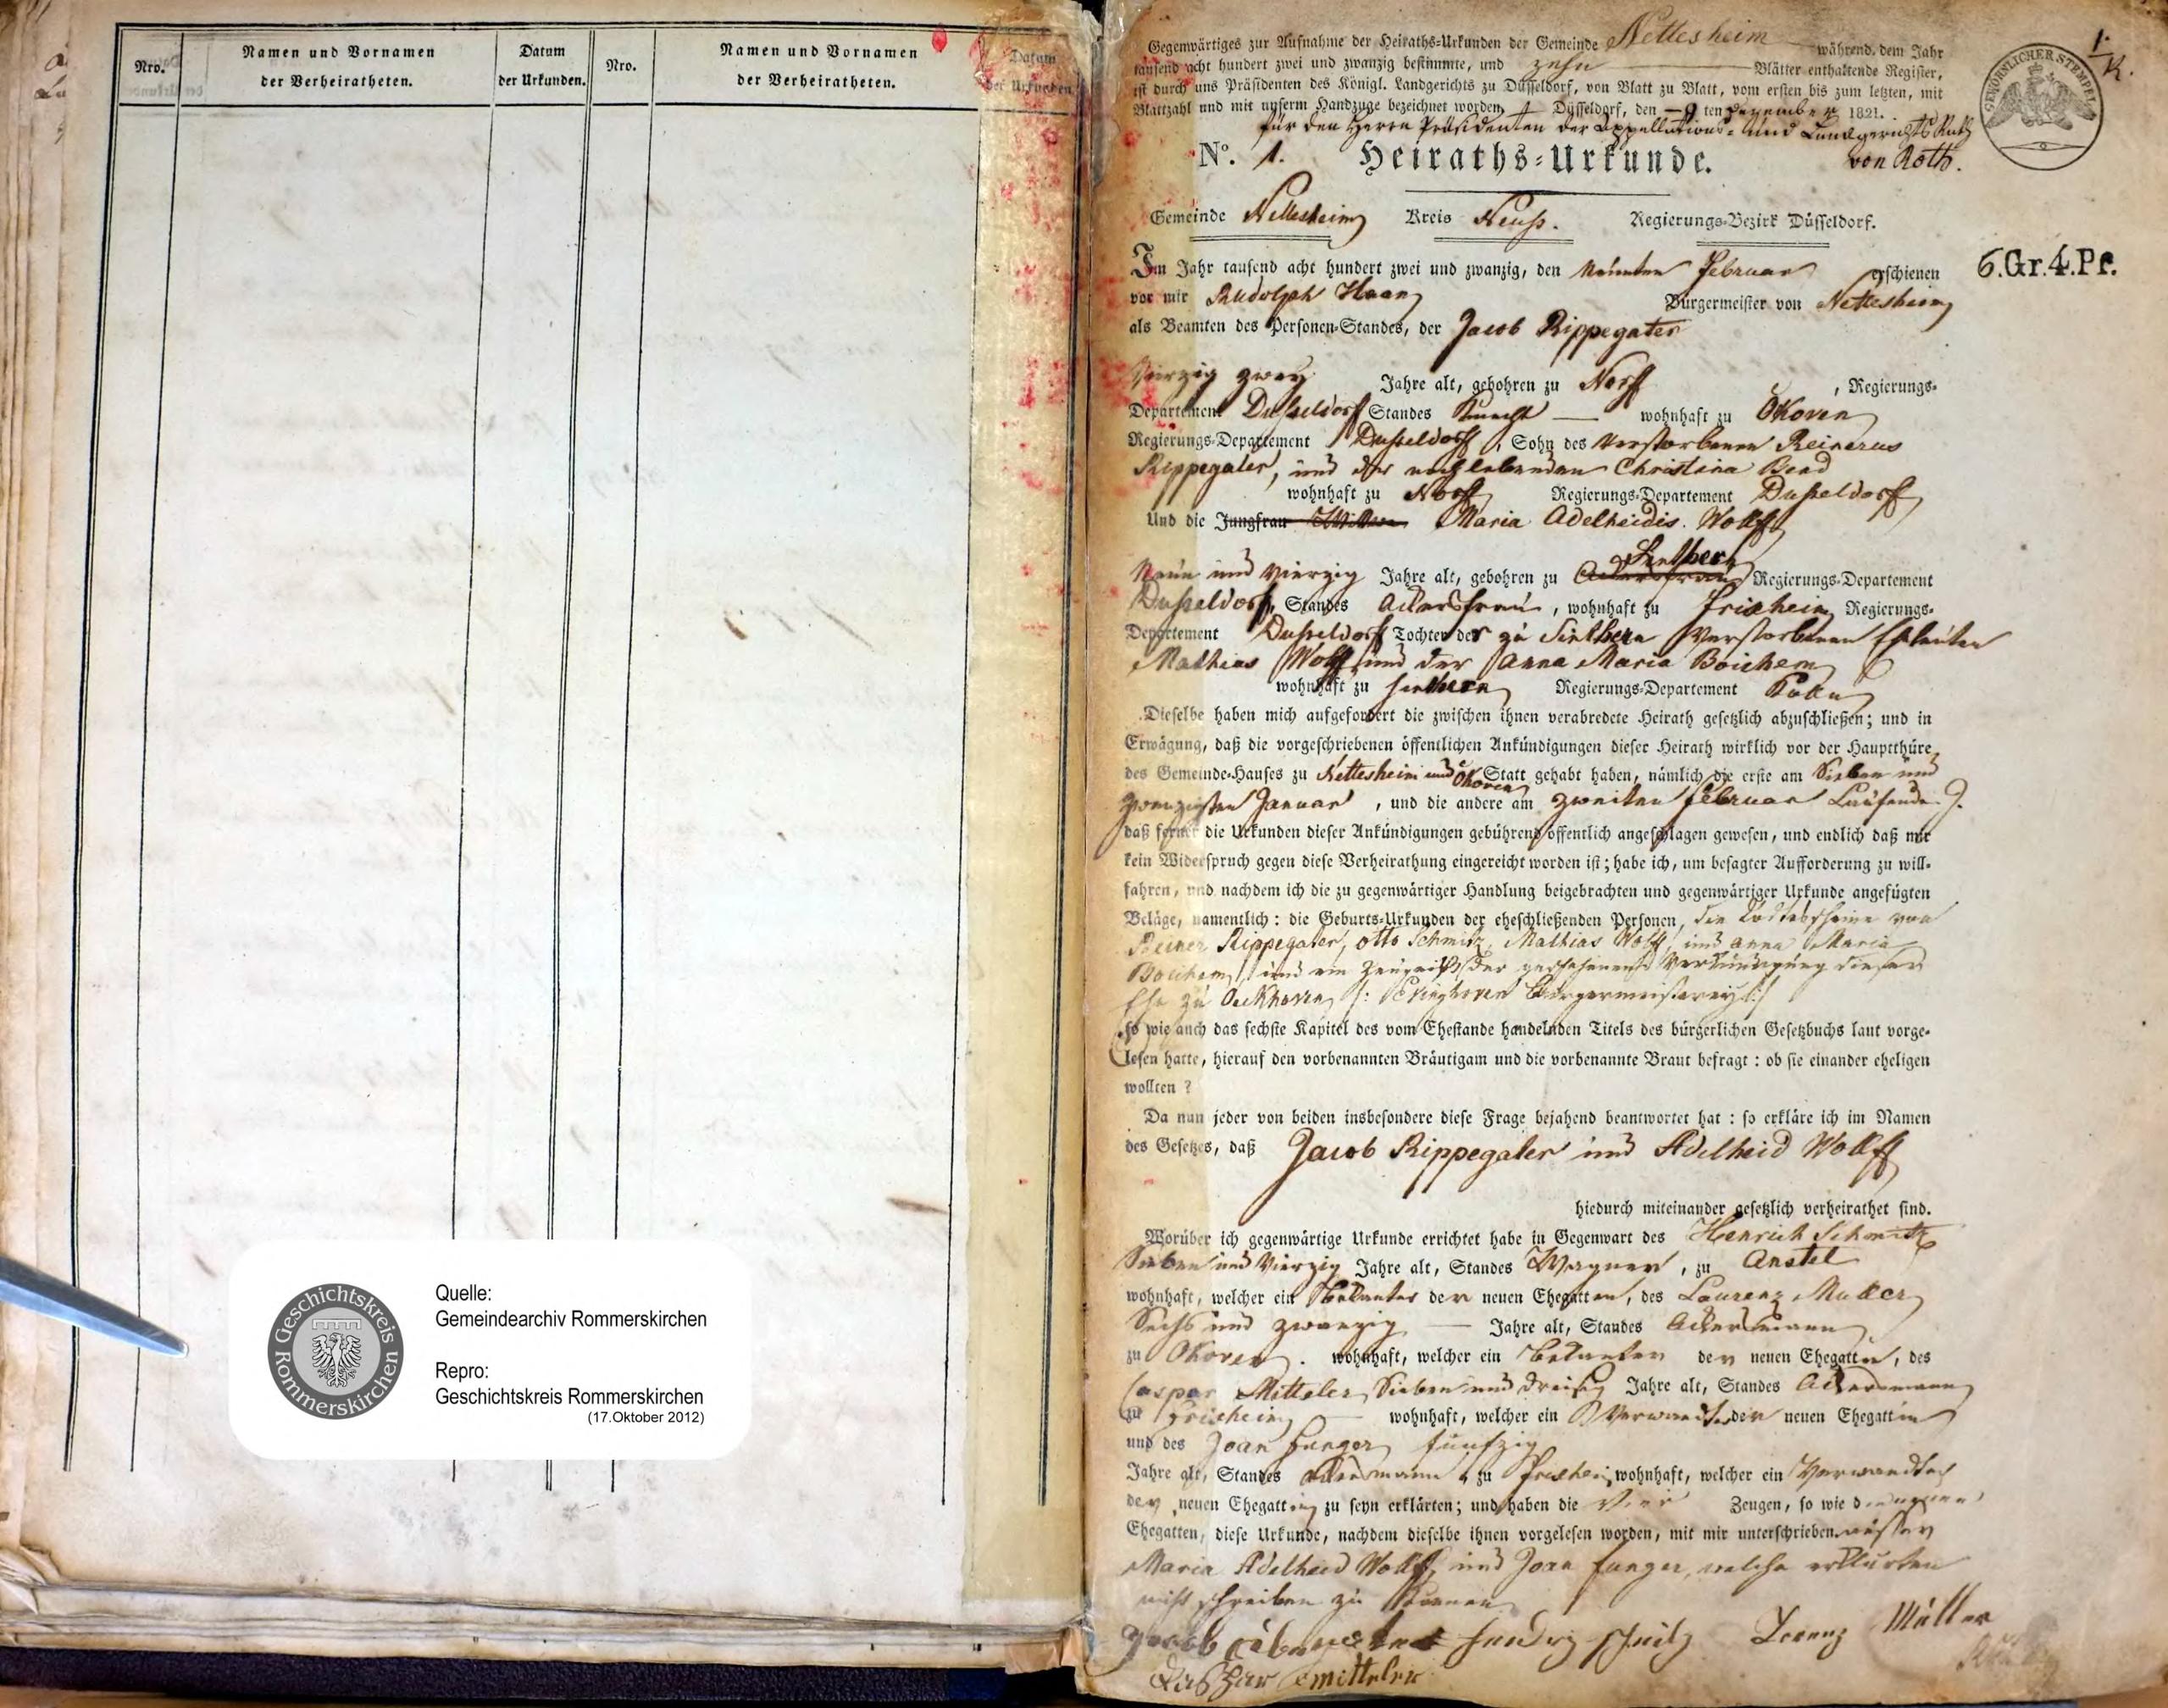 Nro.
Namen und Vornamen
der Verheiratheten.
Datum
der Urkunden.
Nro.
Namen und Vornamen
der Verheiratheten.
Datum
der Urkunden
Quelle:
Gemeindearchiv Rommerskirchen
Repro:
Geschichtskreis Rommerskirchen
(17.Oktober 2012)
Geschichtskreis Rommerskirchen
Gegenwärtiges zur Aufnahme der Heiraths-Urkunden der Gemeinde Nettesheim während dem Jahr
tausend acht hundert zwei und zwanzig bestimmte, und zehn Blätter enthaltende Register,
ist durch uns Präsidenten des Königl. Landgerichts zu Düsseldorf, von Blatt zu Blatt, vom ersten bis zum letzten, mit
Blattzahl und mit unserm Handzuge bezeichnet worden. Düsseldorf, den 9 ten Dezember 1821.
für den Herrn Präsidenten der Appellations- und Landgerichts Rath
von Roth.
1.
GEWÖHNLICHER STEMPEL
6.Gr.4.Pf.
No. 1. Heiraths-Urkunde.
Gemeinde Nettesheim Kreis Neuß. Regierungs-Bezirk Düsseldorf.
Im Jahr tausend acht hundert zwei und zwanzig, den Neunten Februar erschienen
vor mir Rudolph Haan Bürgermeister von Nettesheim
als Beamten des Personen-Standes, der Jacob Rippegater
Vierzig zwey Jahre alt, gebohren zu Norff, Regierungs-
Departement Dußeldorf Standes Knecht wohnhaft zu Okoven
Regierungs-Departement Dußeldorff, Sohn des verstorbenen Reinerus
Rippegater, und der noch lebenden Christina Bend
wohnhaft zu Norff Regierungs-Departement Dußeldorff
Und die Jungfrau Wittwe Maria Adelheidis Wolff
Neun und Vierzig Jahre alt, gebohren zu Sinthern Regierungs-Departement
Dußeldorf, Standes Ackersfrau, wohnhaft zu Frixheim Regierungs-
Departement Dußeldorf Tochter der zu Sinthern verstorbenen Eheleuten
Mathias Wolff und der Anna Maria Boichem
wohnhaft zu Sinthern Regierungs-Departement Kölln
Dieselbe haben mich aufgefordert die zwischen ihnen verabredete Heirath gesetzlich abzuschließen; und in
Erwägung, daß die vorgeschriebenen öffentlichen Ankündigungen dieser Heirath wirklich vor der Hauptthüre
des Gemeinde-Hauses zu Nettesheim und Okoven Statt gehabt haben, nämlich die erste am Sieben und
zwanzigsten Januar, und die andere am zweiten Februar Laufenden J.
daß ferner die Urkunden dieser Ankündigungen gebührend öffentlich angeschlagen gewesen, und endlich daß mir
kein Widerspruch gegen diese Verheirathung eingereicht worden ist; habe ich, um besagter Aufforderung zu will-
fahren, und nachdem ich die zu gegenwärtiger Handlung beigebrachten und gegenwärtiger Urkunde angefügten
Beläge, namentlich: die Geburts-Urkunden der eheschließenden Personen, die Todtesscheine von
Reiner Rippegater, Otto Schmitz, Mathias Wolff, und Anna Maria
Boichem, und ein Zeugniß der geschehenen Verkündigung dieser
Ehe zu Oeckhoven /: Evinghoven Bürgermeisterey :/
so wie auch das sechste Kapitel des vom Ehestande handelnden Titels des bürgerlichen Gesetzbuchs laut vorge-
lesen hatte, hierauf den vorbenannten Bräutigam und die vorbenannte Braut befragt: ob sie einander eheligen
wollten?
Da nun jeder von beiden insbesondere diese Frage bejahend beantwortet hat: so erkläre ich im Namen
des Gesetzes, daß Jacob Rippegater und Adelheid Wolff
hiedurch miteinander gesetzlich verheirathet sind.
Worüber ich gegenwärtige Urkunde errichtet habe in Gegenwart des Henrich Schmitz
Sieben und Vierzig Jahre alt, Standes Wagner, zu Anstel
wohnhaft, welcher ein Bekanter der neuen Ehegatten, des Laurenz Muller
Sechs und zwanzig Jahre alt, Standes Ackersmann
zu Okoven wohnhaft, welcher ein Bekanter der neuen Ehegatten, des
Caspar Mitteler Sieben und dreisig Jahre alt, Standes Ackersmann
zu Frixheim wohnhaft, welcher ein Verwandter der neuen Ehegattin
und des Joan Junger fünfzig
Jahre alt, Standes Ackersmann, zu Frixheim wohnhaft, welcher ein Verwandter
der neuen Ehegattin zu seyn erklärten; und haben die Vier Zeugen, so wie die neuen
Ehegatten, diese Urkunde, nachdem dieselbe ihnen vorgelesen worden, mit mir unterschrieben, ausser
Maria Adelheid Wolff, und Joan Junger, welche erklärten
nicht schreiben zu können
Lorenz Müller
Caspar Mitteler